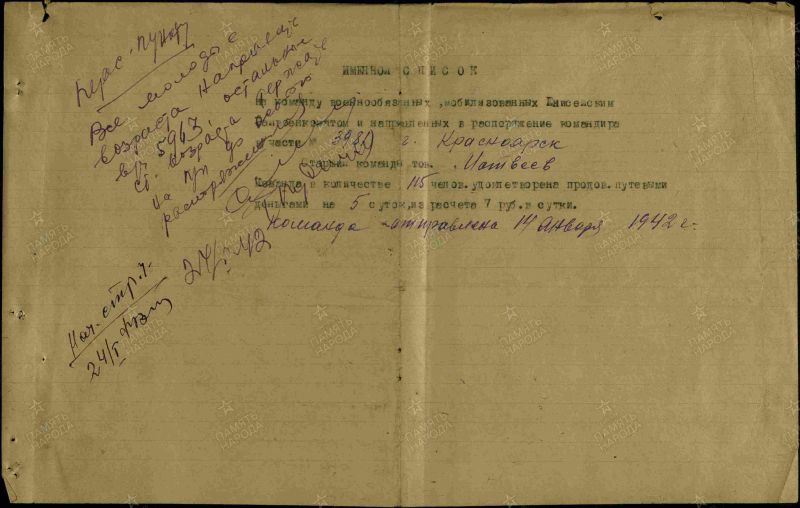 Крас. пункт
Все молодые
возраста направьте
в/ч 5967 остальные
ст. возраста держать
на п/п до
распоряжения
24/I 42
Нач. стр. ч.
24/I
ИМЕННОЙ СПИСОК
на команду военнообязанных, мобилизованных Енисейским
Райвоенкоматом и направленных в распоряжение командира
части № г. Красноярск
Старший команды тов. Матвеев
Команда в количестве 115 челов. удовлетворена продов. путевыми
деньгами на 5 суток, из расчета 7 руб. в сутки.
Команда отправлена 14 января 1942 г.
ПАМЯТЬ НАРОДА